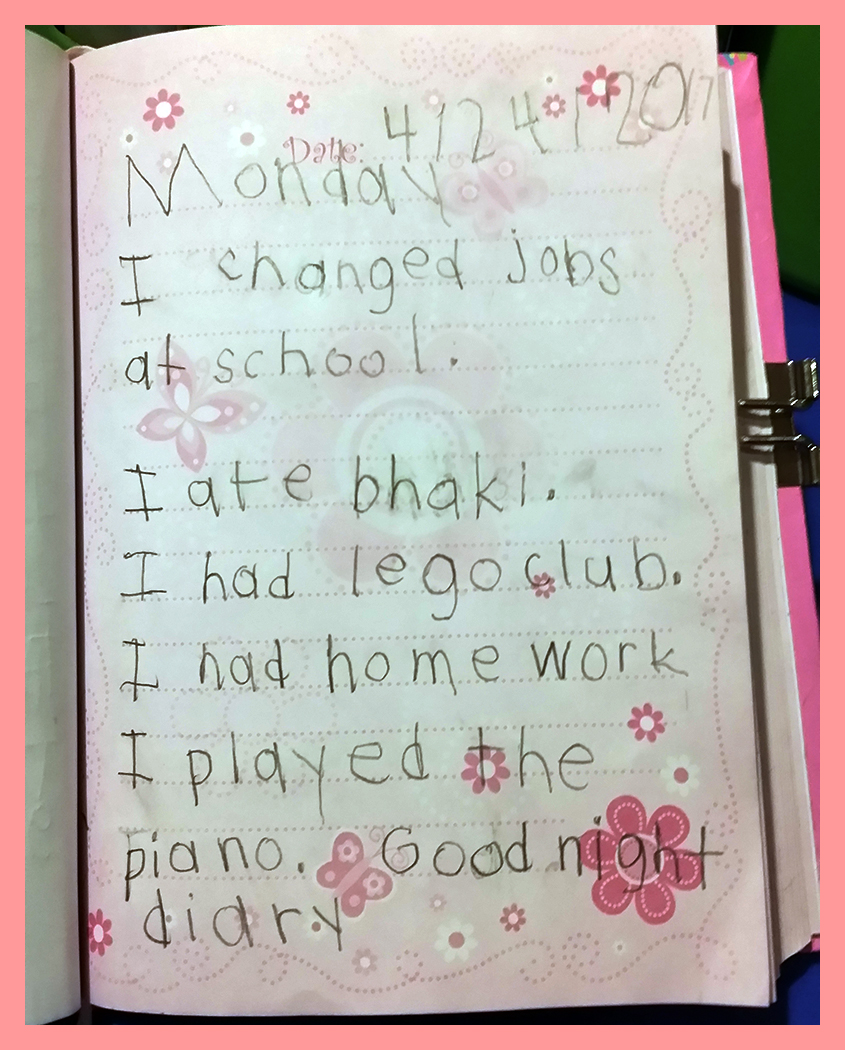 Date: 4/24/2017
Monday
I changed jobs
at school.
I ate bhaki.
I had lego club.
I had home work
I played the
piano. Good night
diary